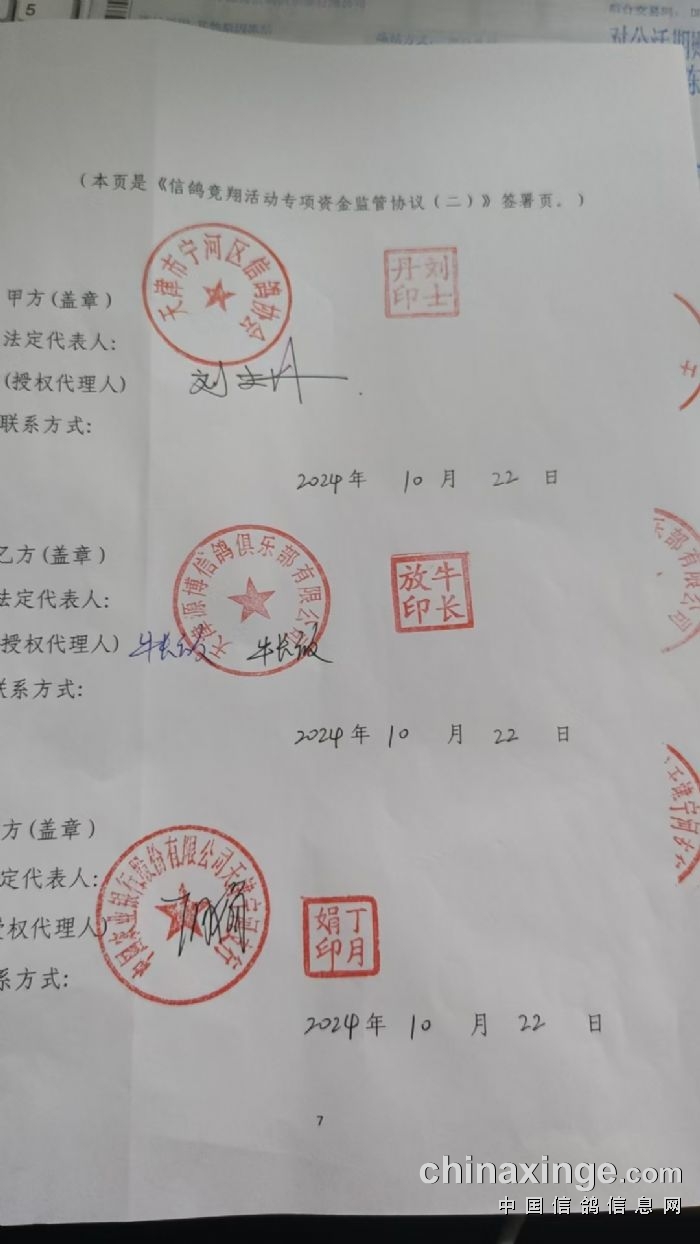 5
对公活期账
(本页是《信鸽竞翔活动专项资金监管协议(二)》签署页。)
天津市宁河区信鸽协会
刘士
丹印
甲方(盖章)
法定代表人:
(授权代理人)
刘士丹
联系方式:
2024年 10月 22日
天津源博信鸽俱乐部有限公司
牛长
放印
乙方(盖章)
法定代表人:
授权代理人)
牛长放 牛长放
联系方式:
2024年 10 月 22 日
乐部有限公司
方(盖章)
定代表人:
中国农业银行股份有限公司天津宁河支行
丁月
娟印
授权代理人)
丁月娟
系方式:
2024年 10 月 22 日
天津宁河支行
7
chinaxinge.com
中国信鸽信息网